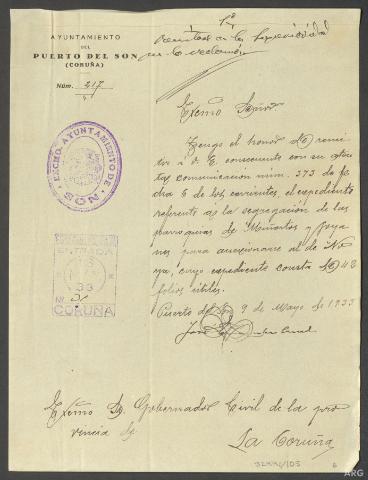 AYUNTAMIENTO
DEL
PUERTO DEL SON
(CORUÑA)
Núm. 217
1º
en la
Excmo Señor.
Tengo el honor de remi
tir a V. E. consecuente con su aten
ta comunicacion núm. 373 da fe
cha 5 de los corrientes, el expediente
referente a la segregación de las
parroquias de Miñortos y Joya
nes para anexionarse al de No
ya, cuyo expediente consta de 48
folios útiles.
Puerto del Son 9 de Mayo de 1933
José
EXCMO. AYUNTAMIENTO DE
SON
33
CORUÑA
Exmo Sr. Gobernador Civil de la pro
vincia de
La Coruña
ARG